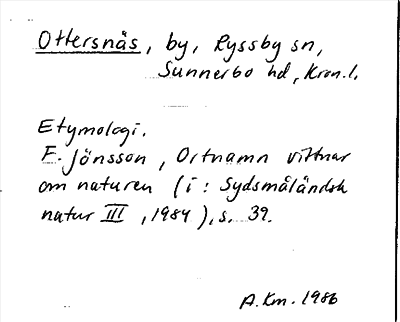 Ottersnäs, by, Ryssby sn,
Sunnerbo hd, Kron.l.
Etymologi.
F. Jönsson, Ortnamn vittnar
om naturen (i: Sydsmåländsk
natur III, 1984), s. 39.
A.Km. 1986